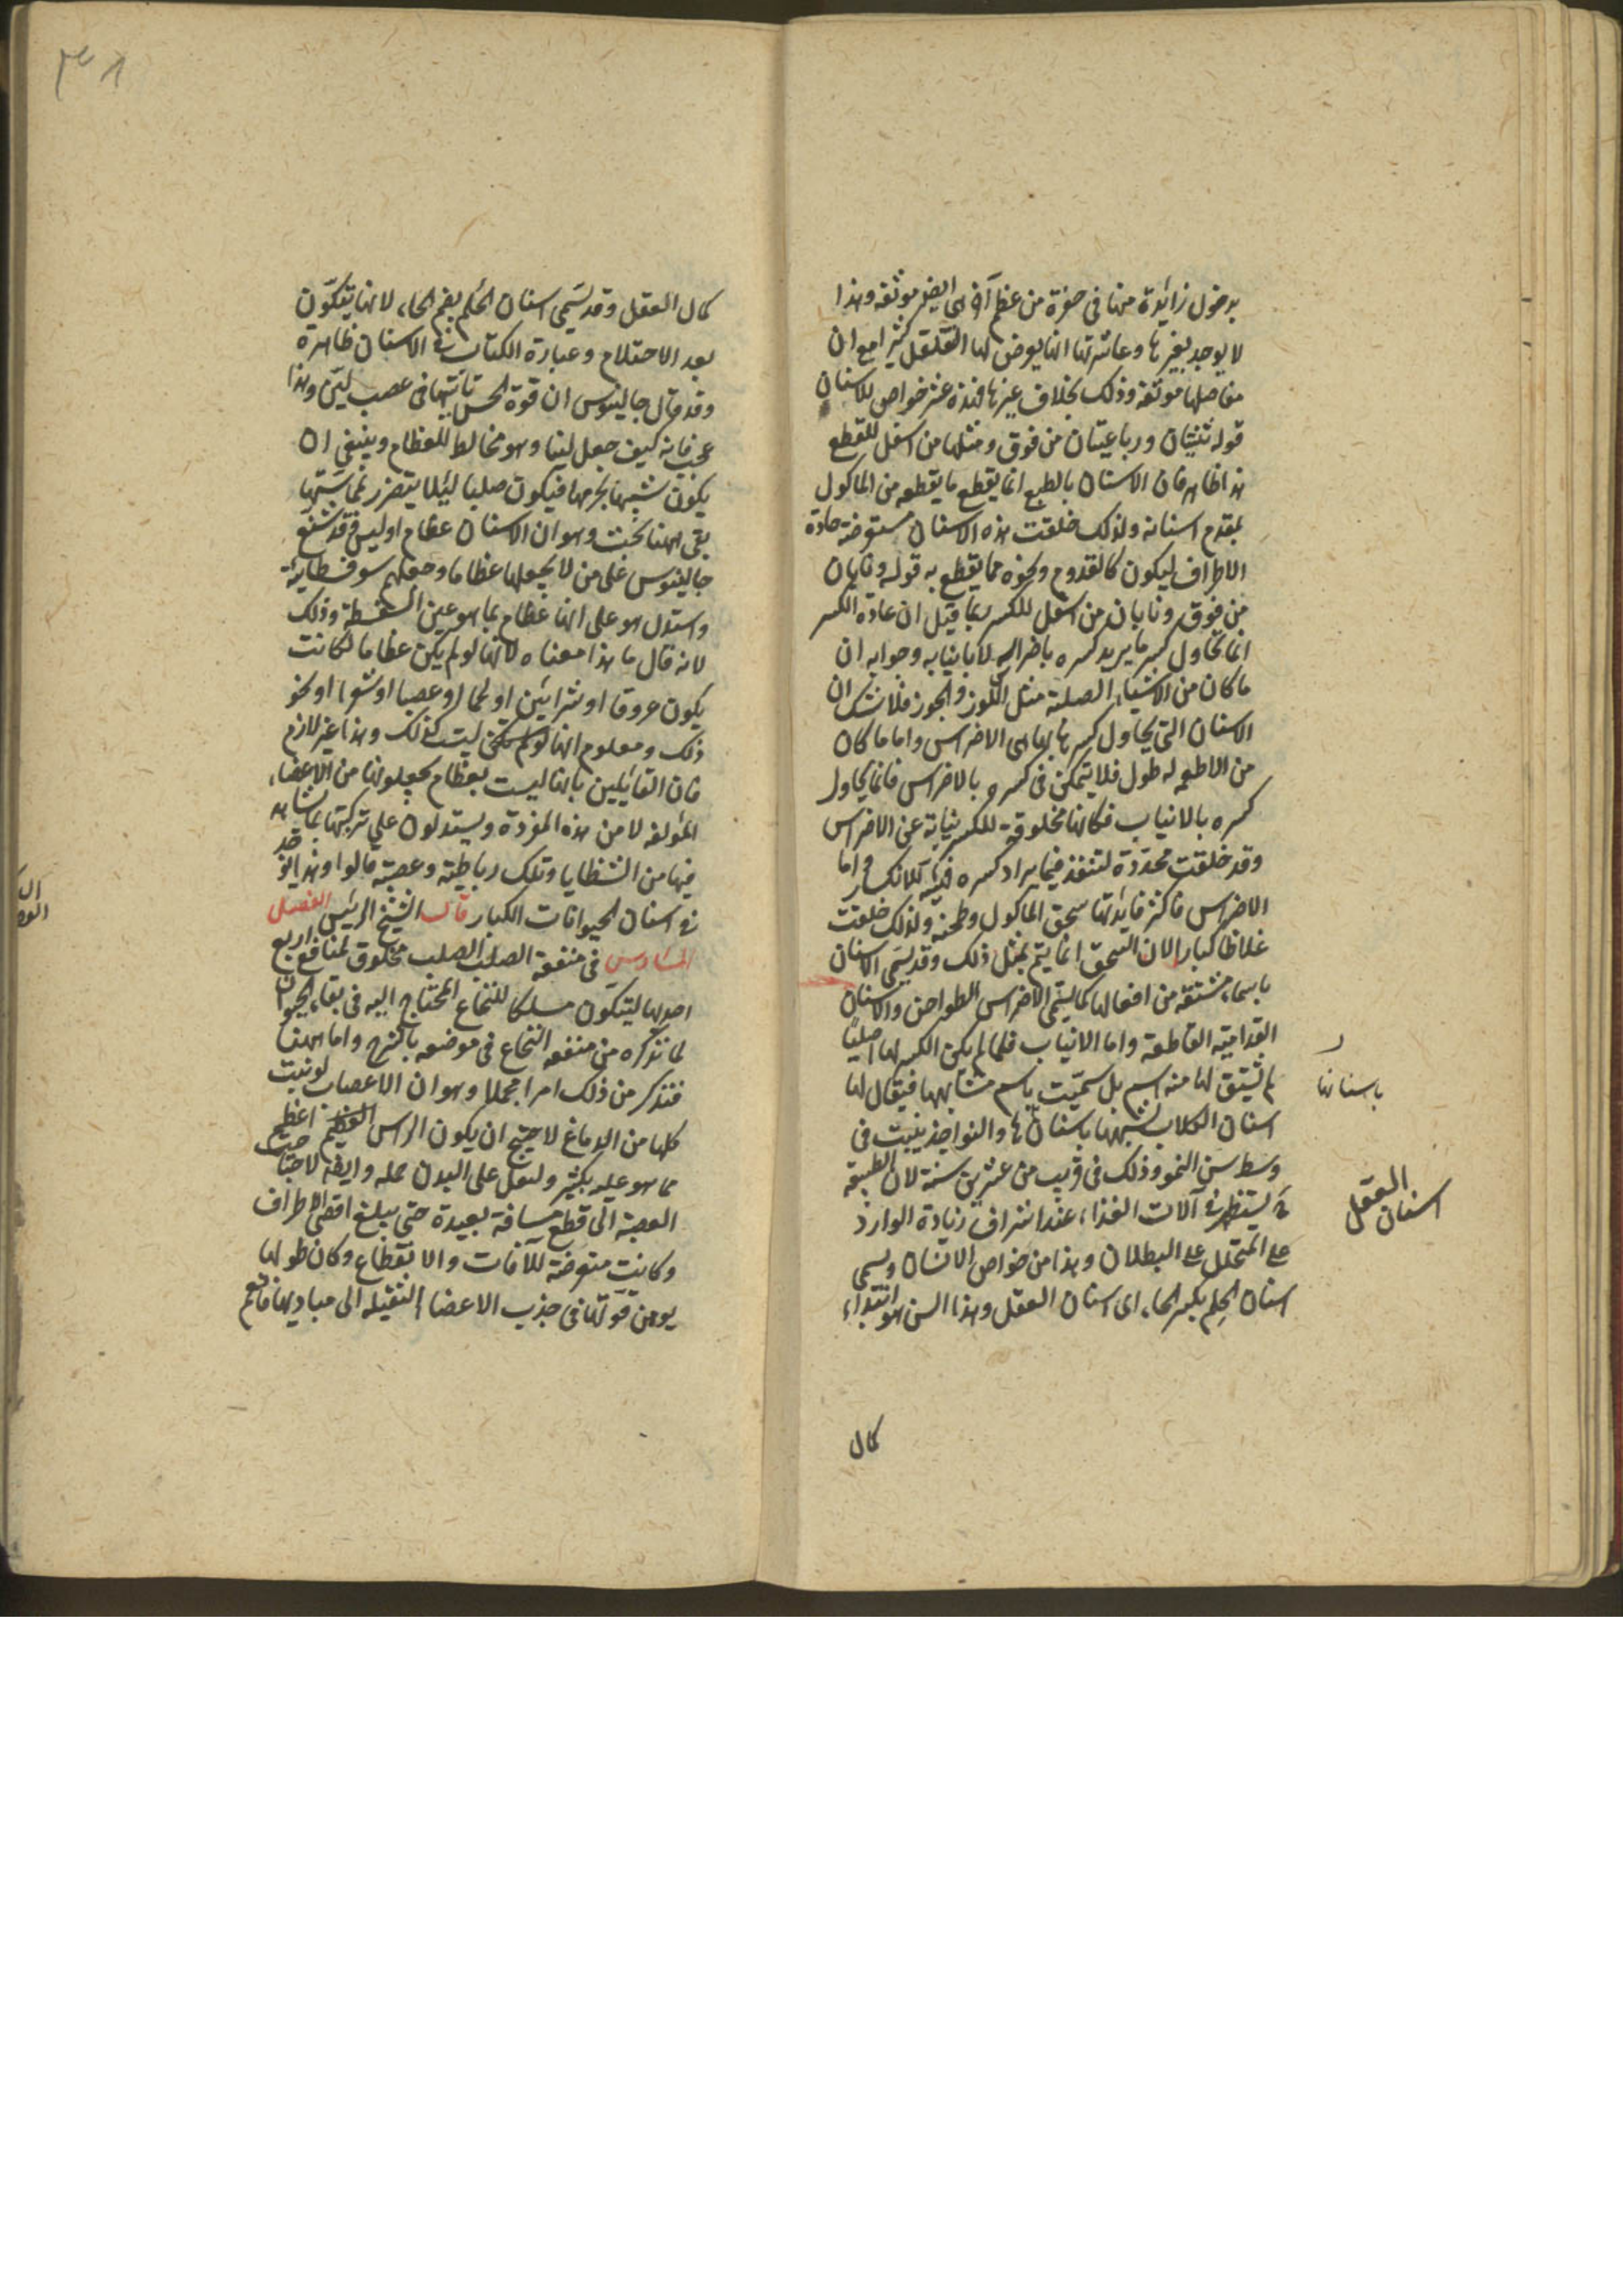 بدخول زائدة منها في حفرة من عظم آخر هي ايضا موثقة وهذا
لا يوجد بغيرها وعاشرتها انها يعرض لها القلقل كثيرا مع ان
مفاصلها موثقة وذلك بخلاف غيرها فهذه عشر خواص للاسنان
قوله ثنيتان ورباعيتان من فوق ومثلها من اسفل للقطع
هذا ظاهر فان الانسان بالطبع انما يقطع ما يقطعه من الماكول
بمقدم اسنانه ولذلك خلقت هذه الاسنان مستعرضة حادة
الاطراف ليكون كالقدوم ونحوه مما يقطع به قوله ونابان
من فوق ونابان من اسفل للكسر ربما قيل ان عادة الكسر
انما تحاول كسر ما يريد كسره باضراسه لا بانيابه وجوابه ان
ما كان من الاشياء الصلبة مثل اللوز والجوز فلا شك ان
الاسنان التي يحاول كسرها بها هي الاضراس واما ما كان
من الاطعمه له طول فلا يتمكن في كسره بالاضراس فانما يحاول
كسره بالانياب فكانها مخلوقة للكسر نيابة عن الاضراس
وقد خلقت محددة لتنفذ فيما يراد كسره فيتهيأ للانكسار واما
الاضراس فاكثر فائدتها سحق الماكول وطحنه ولذلك خلقت
غلاظا كبارا لان السحق انما يتم بمثل ذلك وقد يسمى الاسنان
باسماء مشتقه من افعالها كما يسمى الاضراس الطواحن والاسنان
القدامية القاطعة واما الانياب فلما لم يكن الكسر لها اصليا
لم يشتق لها منه اسم بل سميت باسم مشابهها فيقال لها
اسنان الكلاب لشبهها باسنانها والنواجذ ينبت في
باسنانها
وسط سن النمو وذلك في قريب من عشرين سنة لان الطبيعة
اسنان العقل
تستظهر في آلات الغذاء عند اشراف زيادة الوارد
على المتحلل على البطلان وهذا من خواص الانسان ويسمى
اسنان الحلم بكسر الحاء اى اسنان العقل وهذا السن هو ابتداء
كمال
كمال العقل وقد يسمى اسنان الحلم بضم الحاء لانها يتكون
بعد الاحتلام وعبارة الكتاب في الاسنان ظاهرة
وقد قال جالينوس ان قوة الحس تأتيها في عصب لين وهذا
عجب فانه كيف جعل لينا وهو مخالط للعظام وينبغي ان
يكون شبيها بجرمها فيكون صلبا ليلا يتضرر بمماستها
بقي ههنا بحث وهو ان الاسنان عظام اوليس فقد شنع
جالينوس على من لا يجعلها عظاما وجعلهم سوفسطائية
واستدل هو على انها عظام بما هو عين السفسطة وذلك
لانه قال ما هذا معناه لانها لو لم يكن عظاما لكانت
يكون عروقا او شرائين او لحما او عصبا او شعرا او نحو
ذلك ومعلوم انها ليست كذلك وهذا غير لازم
فان القائلين بانها ليست بعظام يجعلونها من الاعضاء
المؤلفه لا من هذه المفردة ويستدلون على تركبها بما يشاهد
فيها من الشظايا وتلك رباطية وعصبية قالوا وهذا قد
في اسنان الحيوانات الكبار قال الشيخ الرئيس الفصل
السادس في منفعة الصلب الصلب مخلوق لمنافع اربع
احدها ليتكون مسلكا للنخاع المحتاج اليه في بقاء الحيوان
لما نذكره من منفعه النخاع في موضعه بالشرح واما ههنا
فنذكر من ذلك امرا مجملا وهو ان الاعصاب لو نبت
كلها من الدماغ لاحتيج ان يكون الراس اعظم
مما هو عليه بكثير ولثقل على البدن حمله وايضا لاحتاجت
العصبة الى قطع مسافة بعيدة حتى يبلغ اقصى الاطراف
وكانت متعرضة للآفات والانقطاع وكان طولها
يوهن قوتها في جذب الاعضا الثقيله الى مباديها فانعم